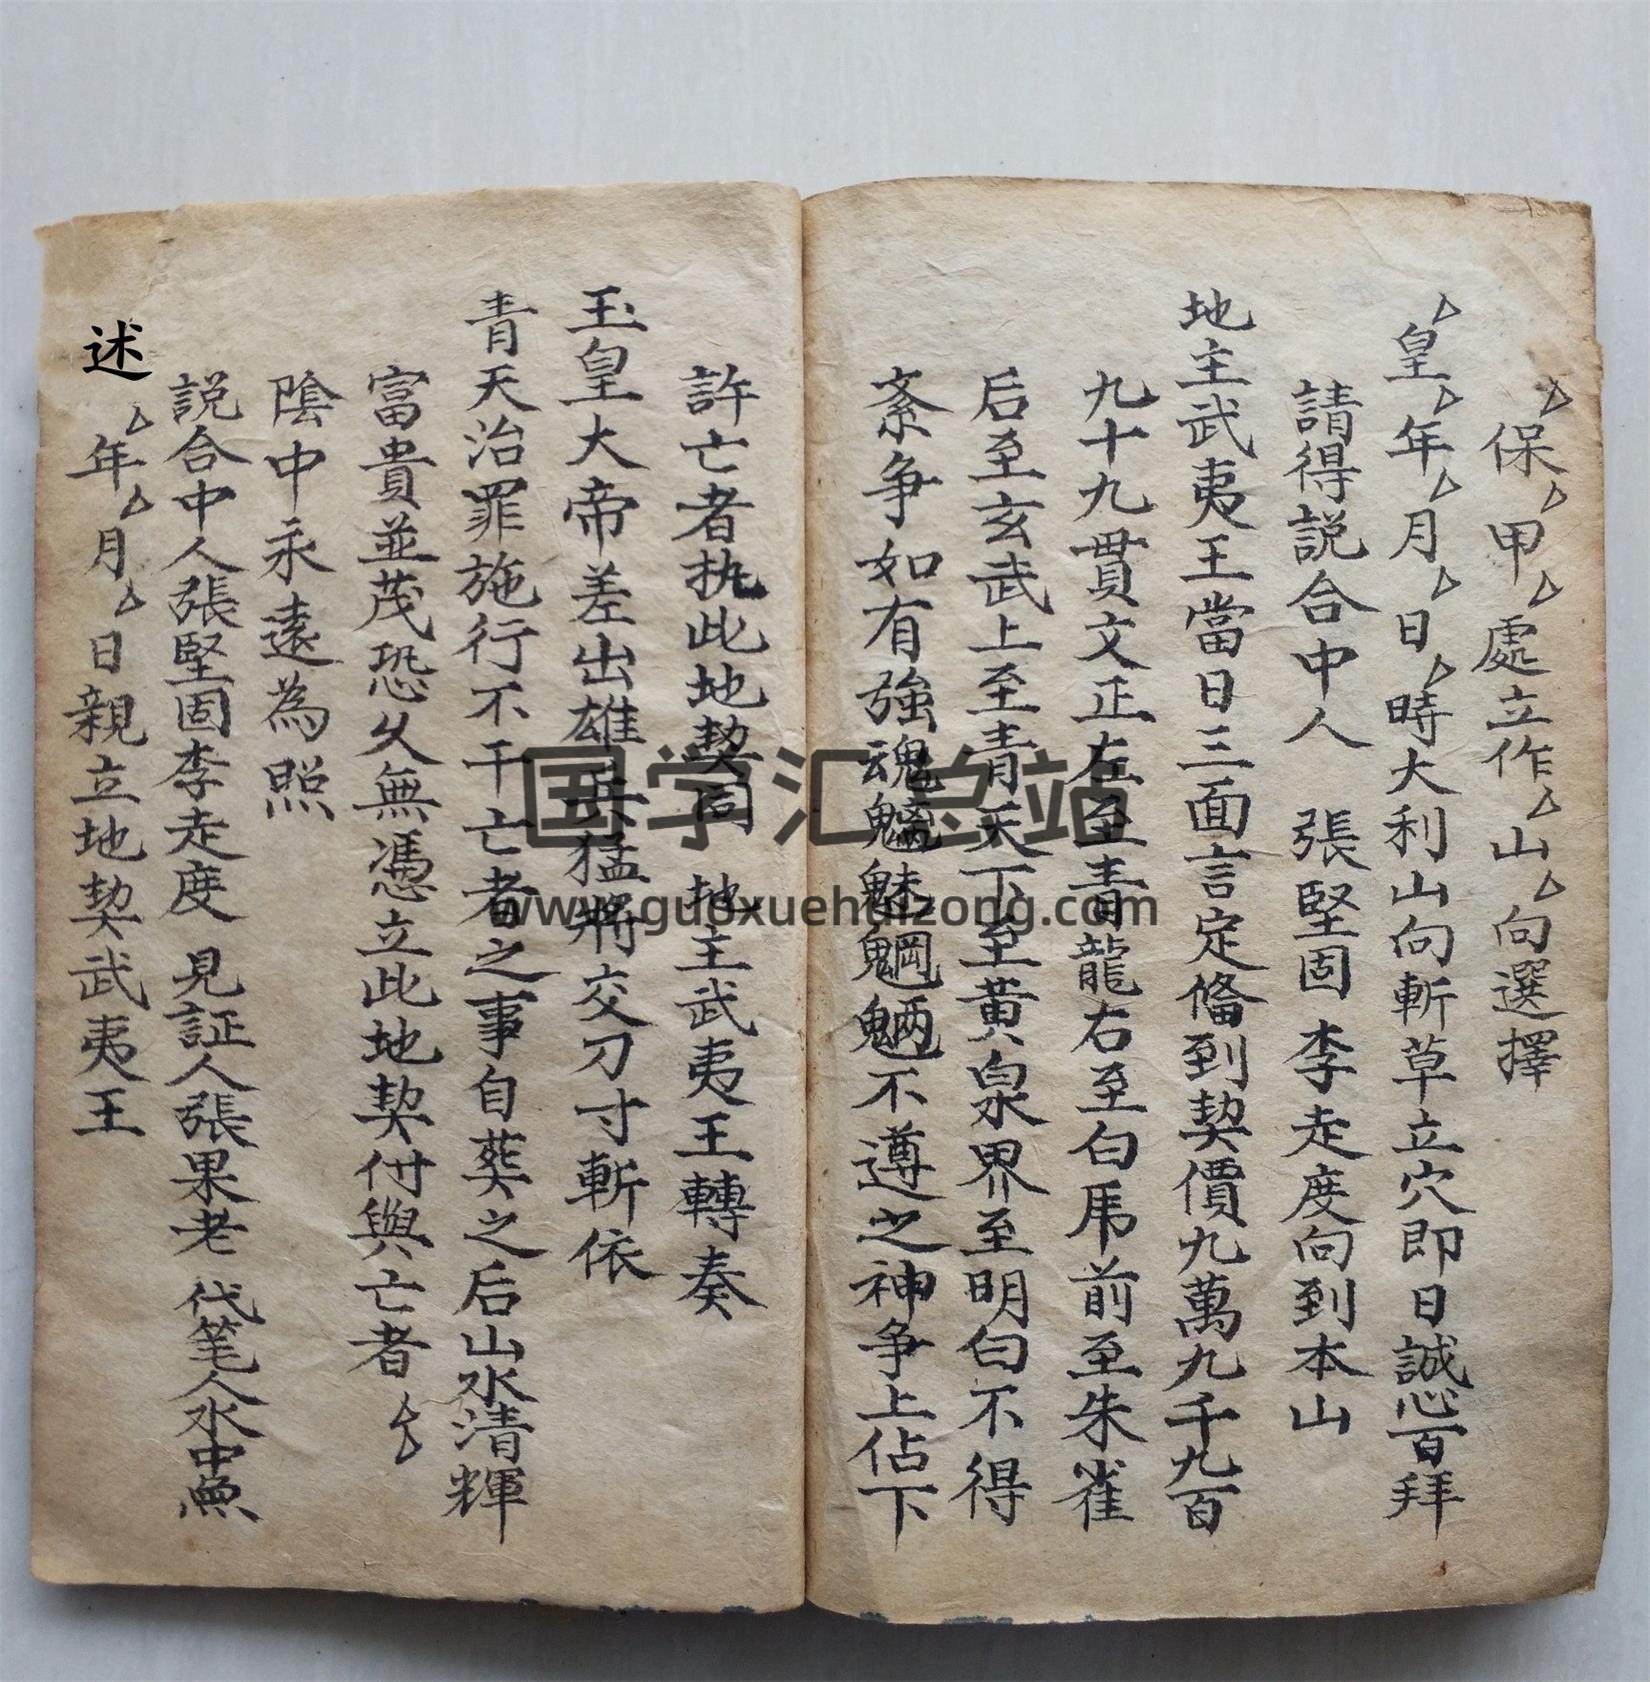 厶保厶甲厶處立作厶山厶向選擇
厶皇厶年厶月厶日厶時大利山向斬草立穴即日誠心百拜
請得説合中人 張堅固 李走度向到本山
地主武夷王當日三面言定俻到契價九萬九千九百
九十九貫文正左至青龍右至白虎前至朱雀
后至玄武上至青天下至黃泉界至明白不得
紊争如有強魂魑魅魍魎不遵之神争上佔下
許亡者执此地契同 地主武夷王轉奏
玉皇大帝差出雄兵猛將交刀寸斬依
青天治罪施行不干亡者之事自葬之后山水清輝
富貴並茂恐久無憑立此地契付與亡者厶厶
陰中永遠為照
説合中人張堅固李走度 見証人張果老 代笔人水中魚
述
厶年厶月厶日親立地契武夷王
国学汇总站
www.guoxuehuizong.com